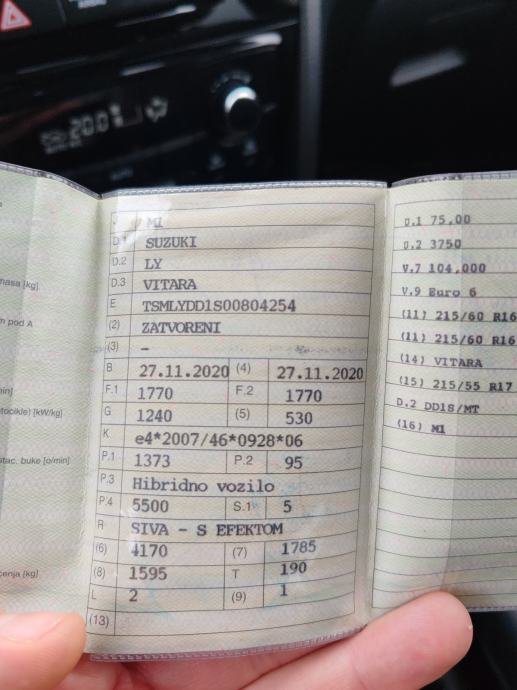 20.0
masa [kg]
m pod A
min]
tocikle) [kW/kg]
stac. buke [o/min]
čenja [kg]
MI
D.1 SUZUKI
D.2 LY
D.3 VITARA
E TSMLYDD1S00804254
(2) ZATVORENI
(3) –
B 27.11.2020 (4) 27.11.2020
F.1 1770 F.2 1770
G 1240 (5) 530
K e4*2007/46*0928*06
P.1 1373 P.2 95
P.3 Hibridno vozilo
P.4 5500 S.1 5
R SIVA - S EFEKTOM
(6) 4170 (7) 1785
(8) 1595 T 190
L 2 (9) 1
(13)
U.1 75,00
U.2 3750
V.7 104,000
V.9 Euro 6
(11) 215/60 R16
(11) 215/60 R16
(14) VITARA
(15) 215/55 R17
D.2 DD1S/MT
(16) MI